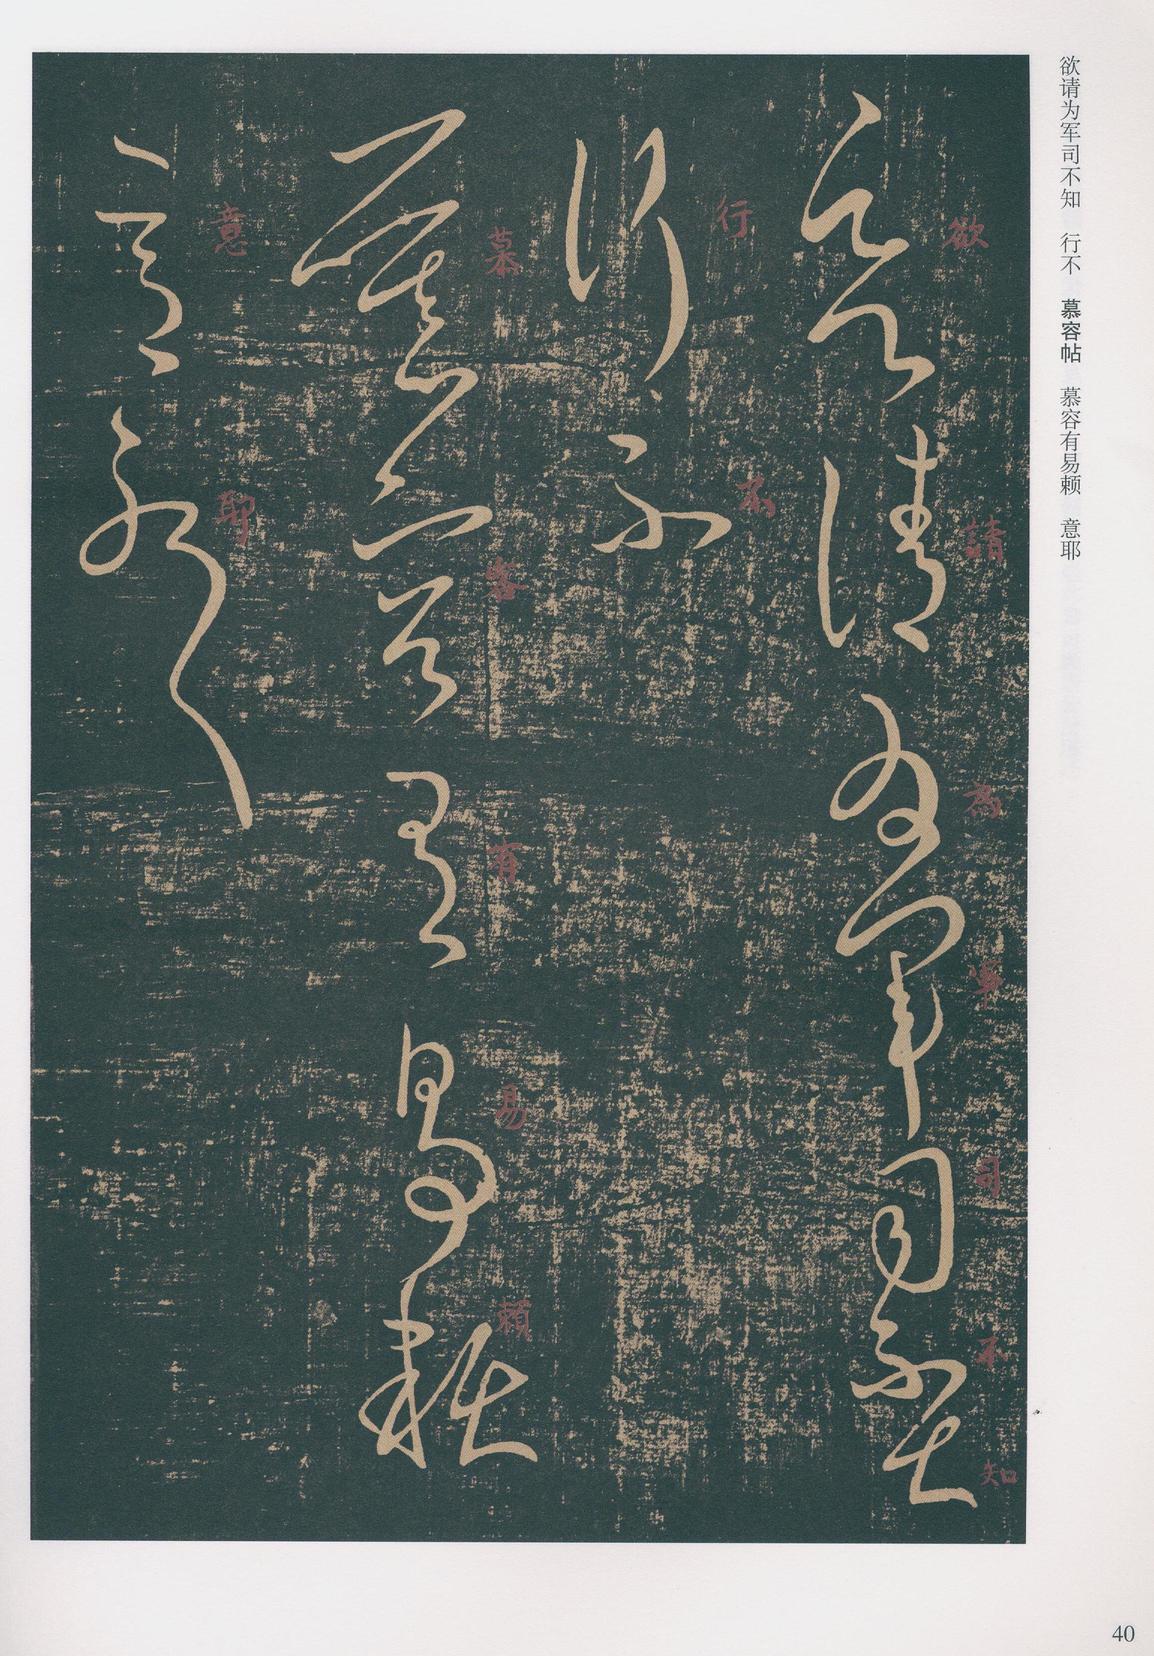 欲请为军司不知　行不　慕容帖　慕容有易赖　意耶
欲請為軍司不知
行不
慕容有易賴
意耶
40